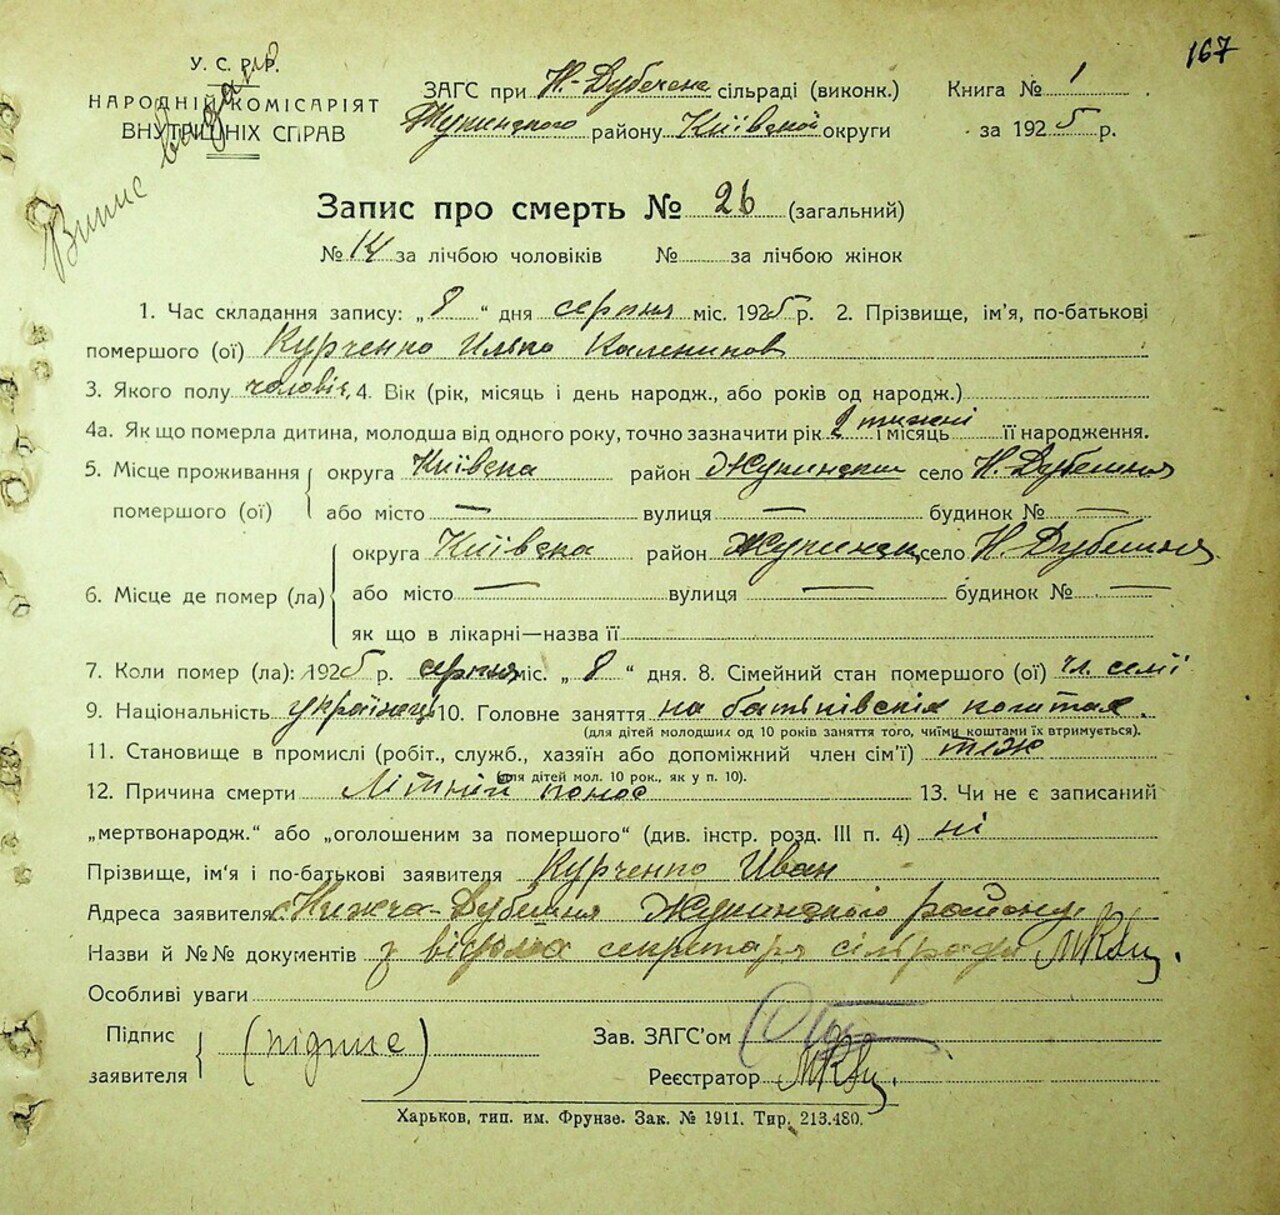 167
У. С. Р. Р.
НАРОДНІЙ КОМІСАРІЯТ
ВНУТРІШНІХ СПРАВ
Витис
ЗАГС при Н.-Дубечска сільраді (виконк.) Книга № 1
Жукинского району Київской округи за 1925 р.
Запис про смерть № 26 (загальний)
№ 14 за лічбою чоловіків № за лічбою жінок
1. Час складання запису: „8“ дня серпня міс. 1925 р. 2. Прізвище, ім'я, по-батькові
помершого (ої) Курченко Илько Калеников
3. Якого полу чоловіч. 4. Вік (рік, місяць і день народж., або років од народж.)
4а. Як що померла дитина, молодша від одного року, точно зазначити рік 2 тижні і місяць її народження.
5. Місце проживання помершого (ої) округа Київска район Жукинский село Н. Дубешня
або місто — вулиця — будинок № —
6. Місце де помер (ла) округа Київска район Жукинск. село Н. Дубешня
або місто — вулиця — будинок № —
як що в лікарні—назва її
7. Коли помер (ла): 1925 р. серпня міс. „8“ дня. 8. Сімейний стан помершого (ої) чл. семії
9. Національність українець 10. Головне заняття на батьківскіх коштах.
(для дітей молодших од 10 років заняття того, чиїми коштами їх втримується).
11. Становище в промислі (робіт., служб., хазяїн або допоміжний член сім'ї) теж
(для дітей мол. 10 рок., як у п. 10).
12. Причина смерти Літній понос 13. Чи не є записаний
„мертвонародж.“ або „оголошеним за помершого“ (див. інстр. розд. III п. 4) ні
Прізвище, ім'я і по-батькові заявителя Курченко Иван
Адреса заявителя с. Нижча-Дубешня Жукинского району
Назви й №№ документів з відома секретаря сільради
Особливі уваги
Підпис заявителя (підпис) Зав. ЗАГС'ом
Реєстратор
Харьков, тип. им. Фрунзе. Зак. № 1911. Тир. 213.480.